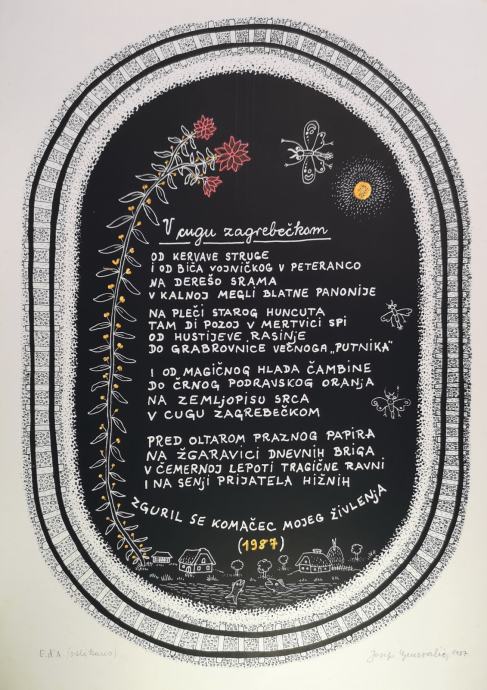 V cugu zagrebečkom
OD KERVAVE STRUGE
I OD BIČA VOJNIČKOG V PETERANCO
NA DEREŠO SRAMA
V KALNOJ MEGLI BLATNE PANONIJE
NA PLEČI STAROG HUNCUTA
TAM DI POZOJ V MERTVICI SPI
OD HUSTIJEVE RASINJE
DO GRABROVNICE VEČNOGA „PUTNIKA“
I OD MAGIČNOG HLADA ČAMBINE
DO ČRNOG PODRAVSKOG ORANJA
NA ZEMLJOPISU SRCA
V CUGU ZAGREBEČKOM
PRED OLTAROM PRAZNOG PAPIRA
NA ŽGARAVICI DNEVNIH BRIGA
V ČEMERNOJ LEPOTI TRAGIČNE RAVNI
I NA SENJI PRIJATELA HIŽNIH
ZGURIL SE KOMAČEC MOJEG ŽIVLENJA
(1987)
E.A.
1987